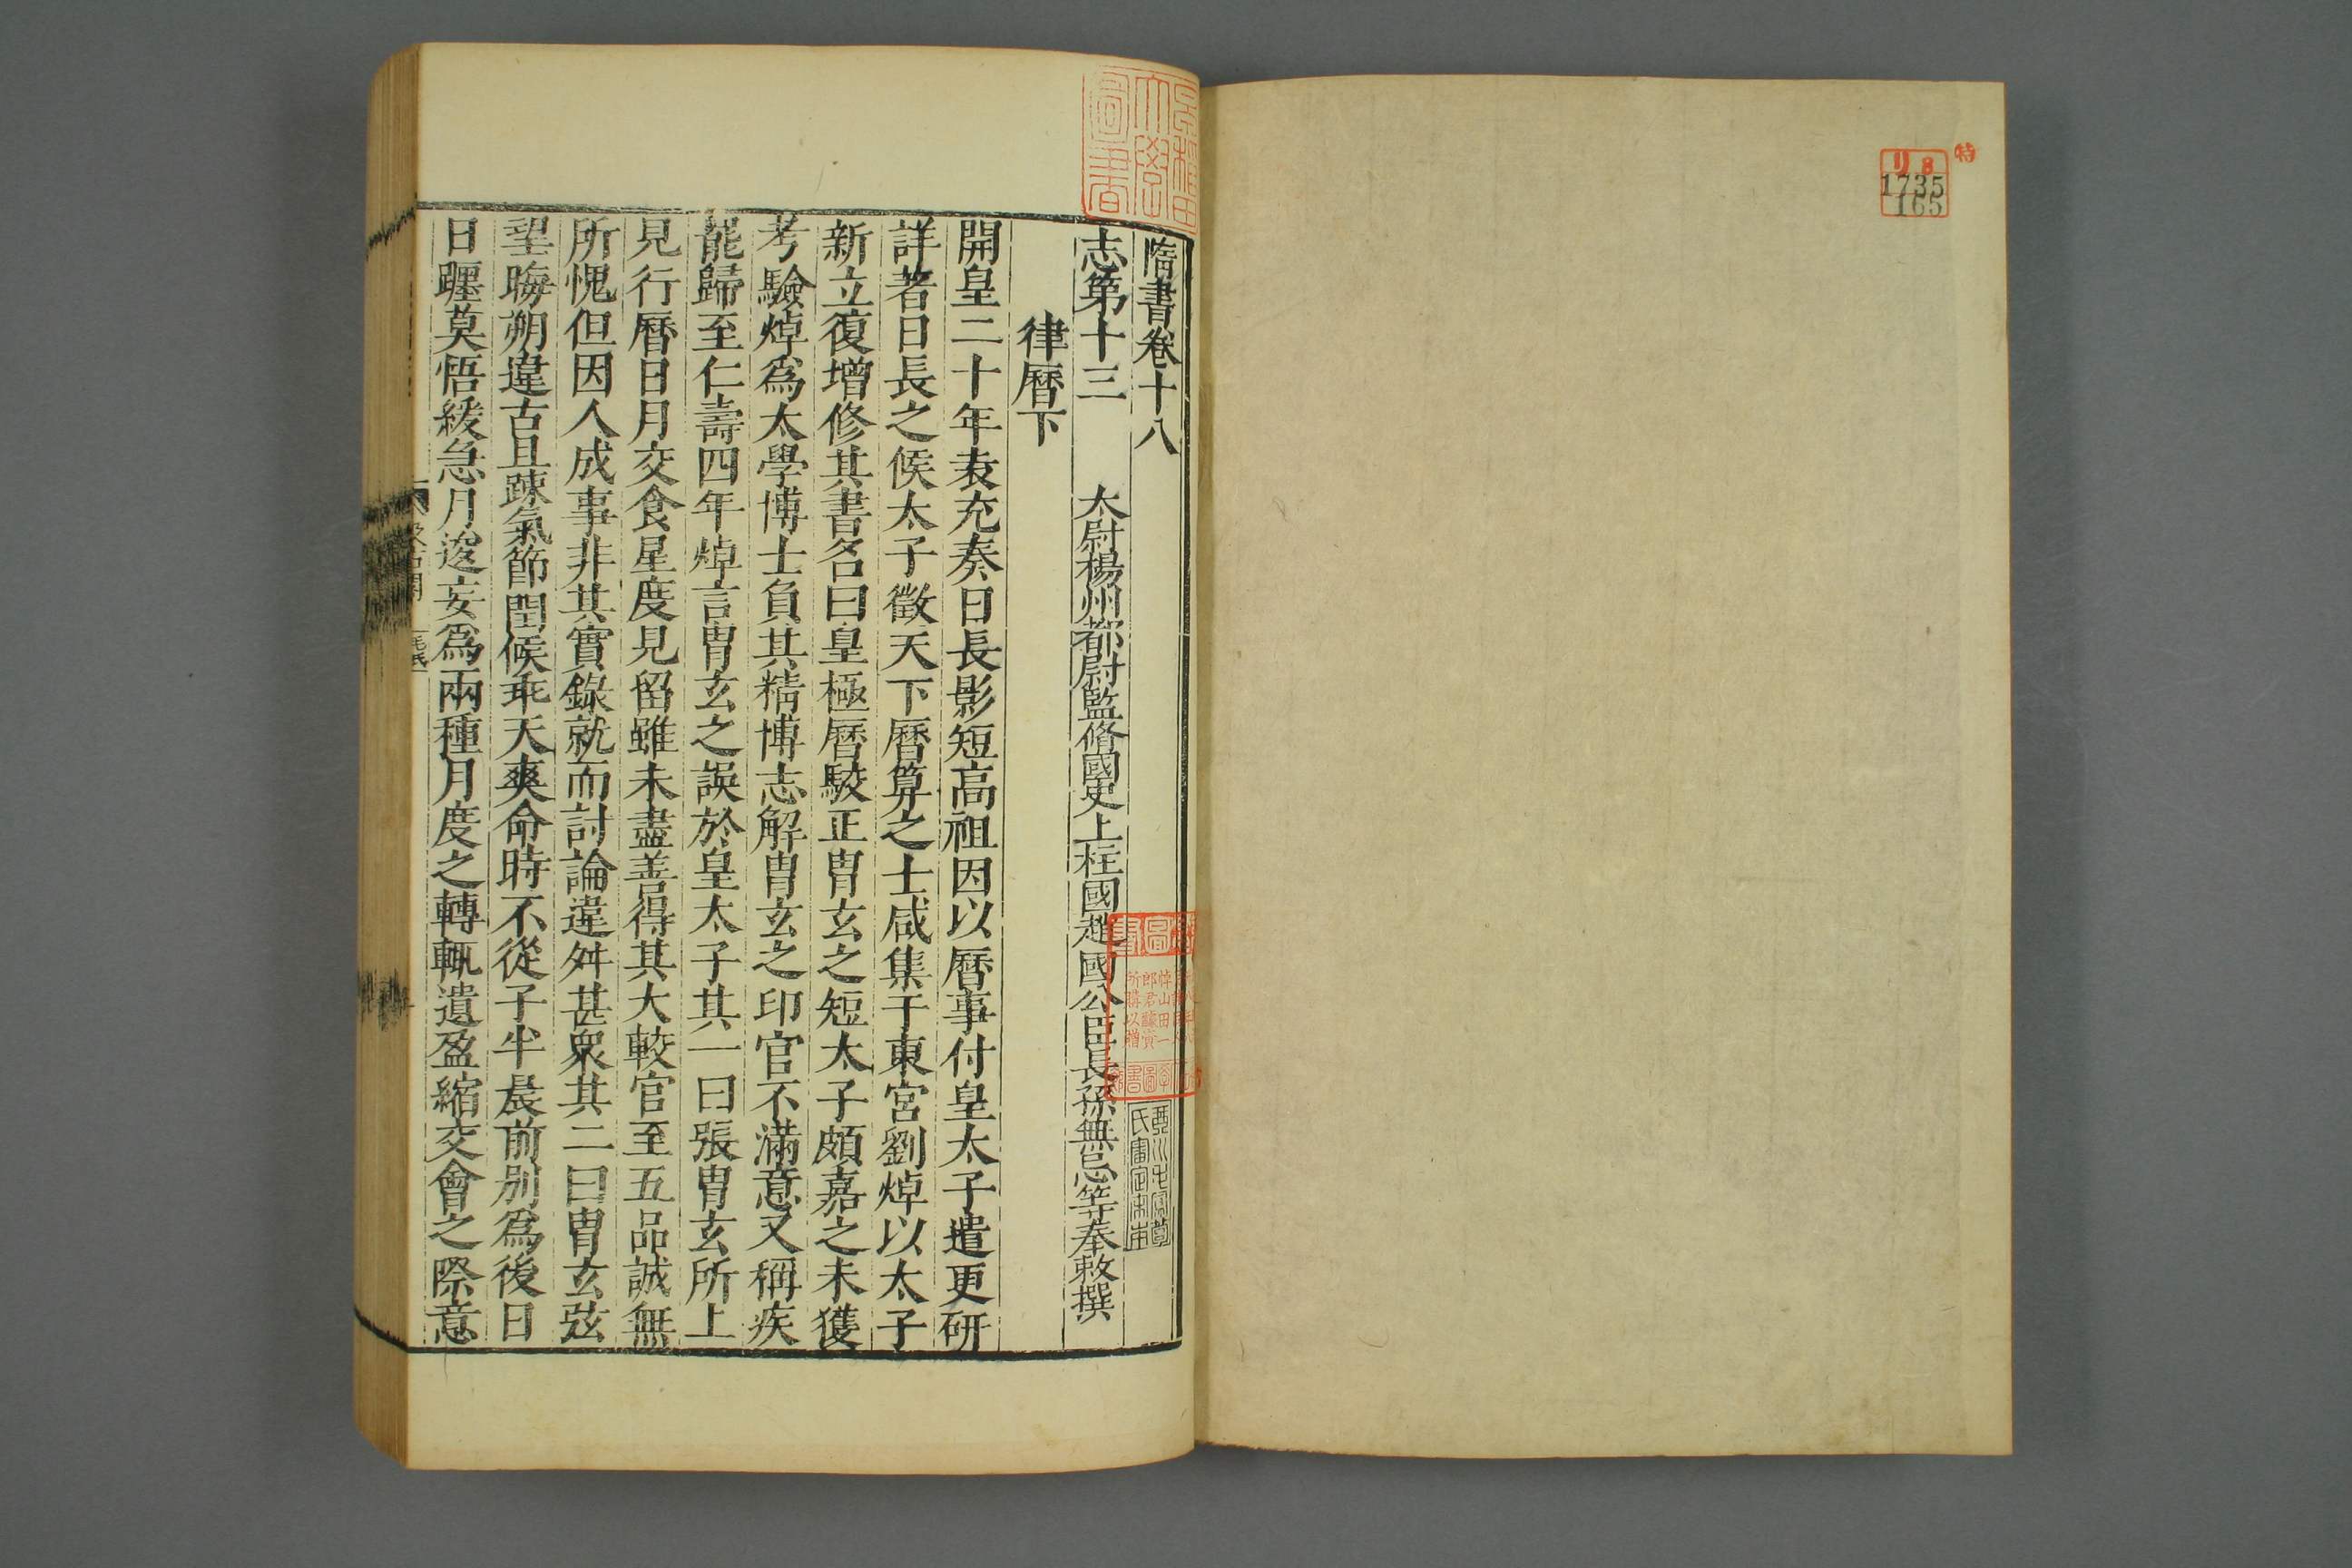 特
リ8
1735
165
隋書卷十八
志第十三　太尉楊州都尉監脩國史上柱國趙國公臣長孫無忌等奉敕撰
律曆下
開皇二十年袁充奏日長影短高祖因以曆事付皇太子遣更研
詳著日長之候太子徵天下曆算之士咸集于東宮劉焯以太子
新立復增修其書名曰皇極曆駮正胄玄之短太子頗嘉之未獲
考驗焯爲太學博士負其精博志解胄玄之印官不滿意又稱疾
罷歸至仁壽四年焯言胄玄之誤於皇太子其一曰張胄玄所上
見行曆日月交食星度見留雖未盡善得其大較官至五品誠無
所愧但因人成事非其實錄就而討論違舛甚衆其二曰胄玄弦
望晦朔違古且踈氣節閏候乖天爽命時不從子半晨前别爲後日
日躔莫悟緩急月逡妄爲兩種月度之轉輒遺盈縮交會之際意